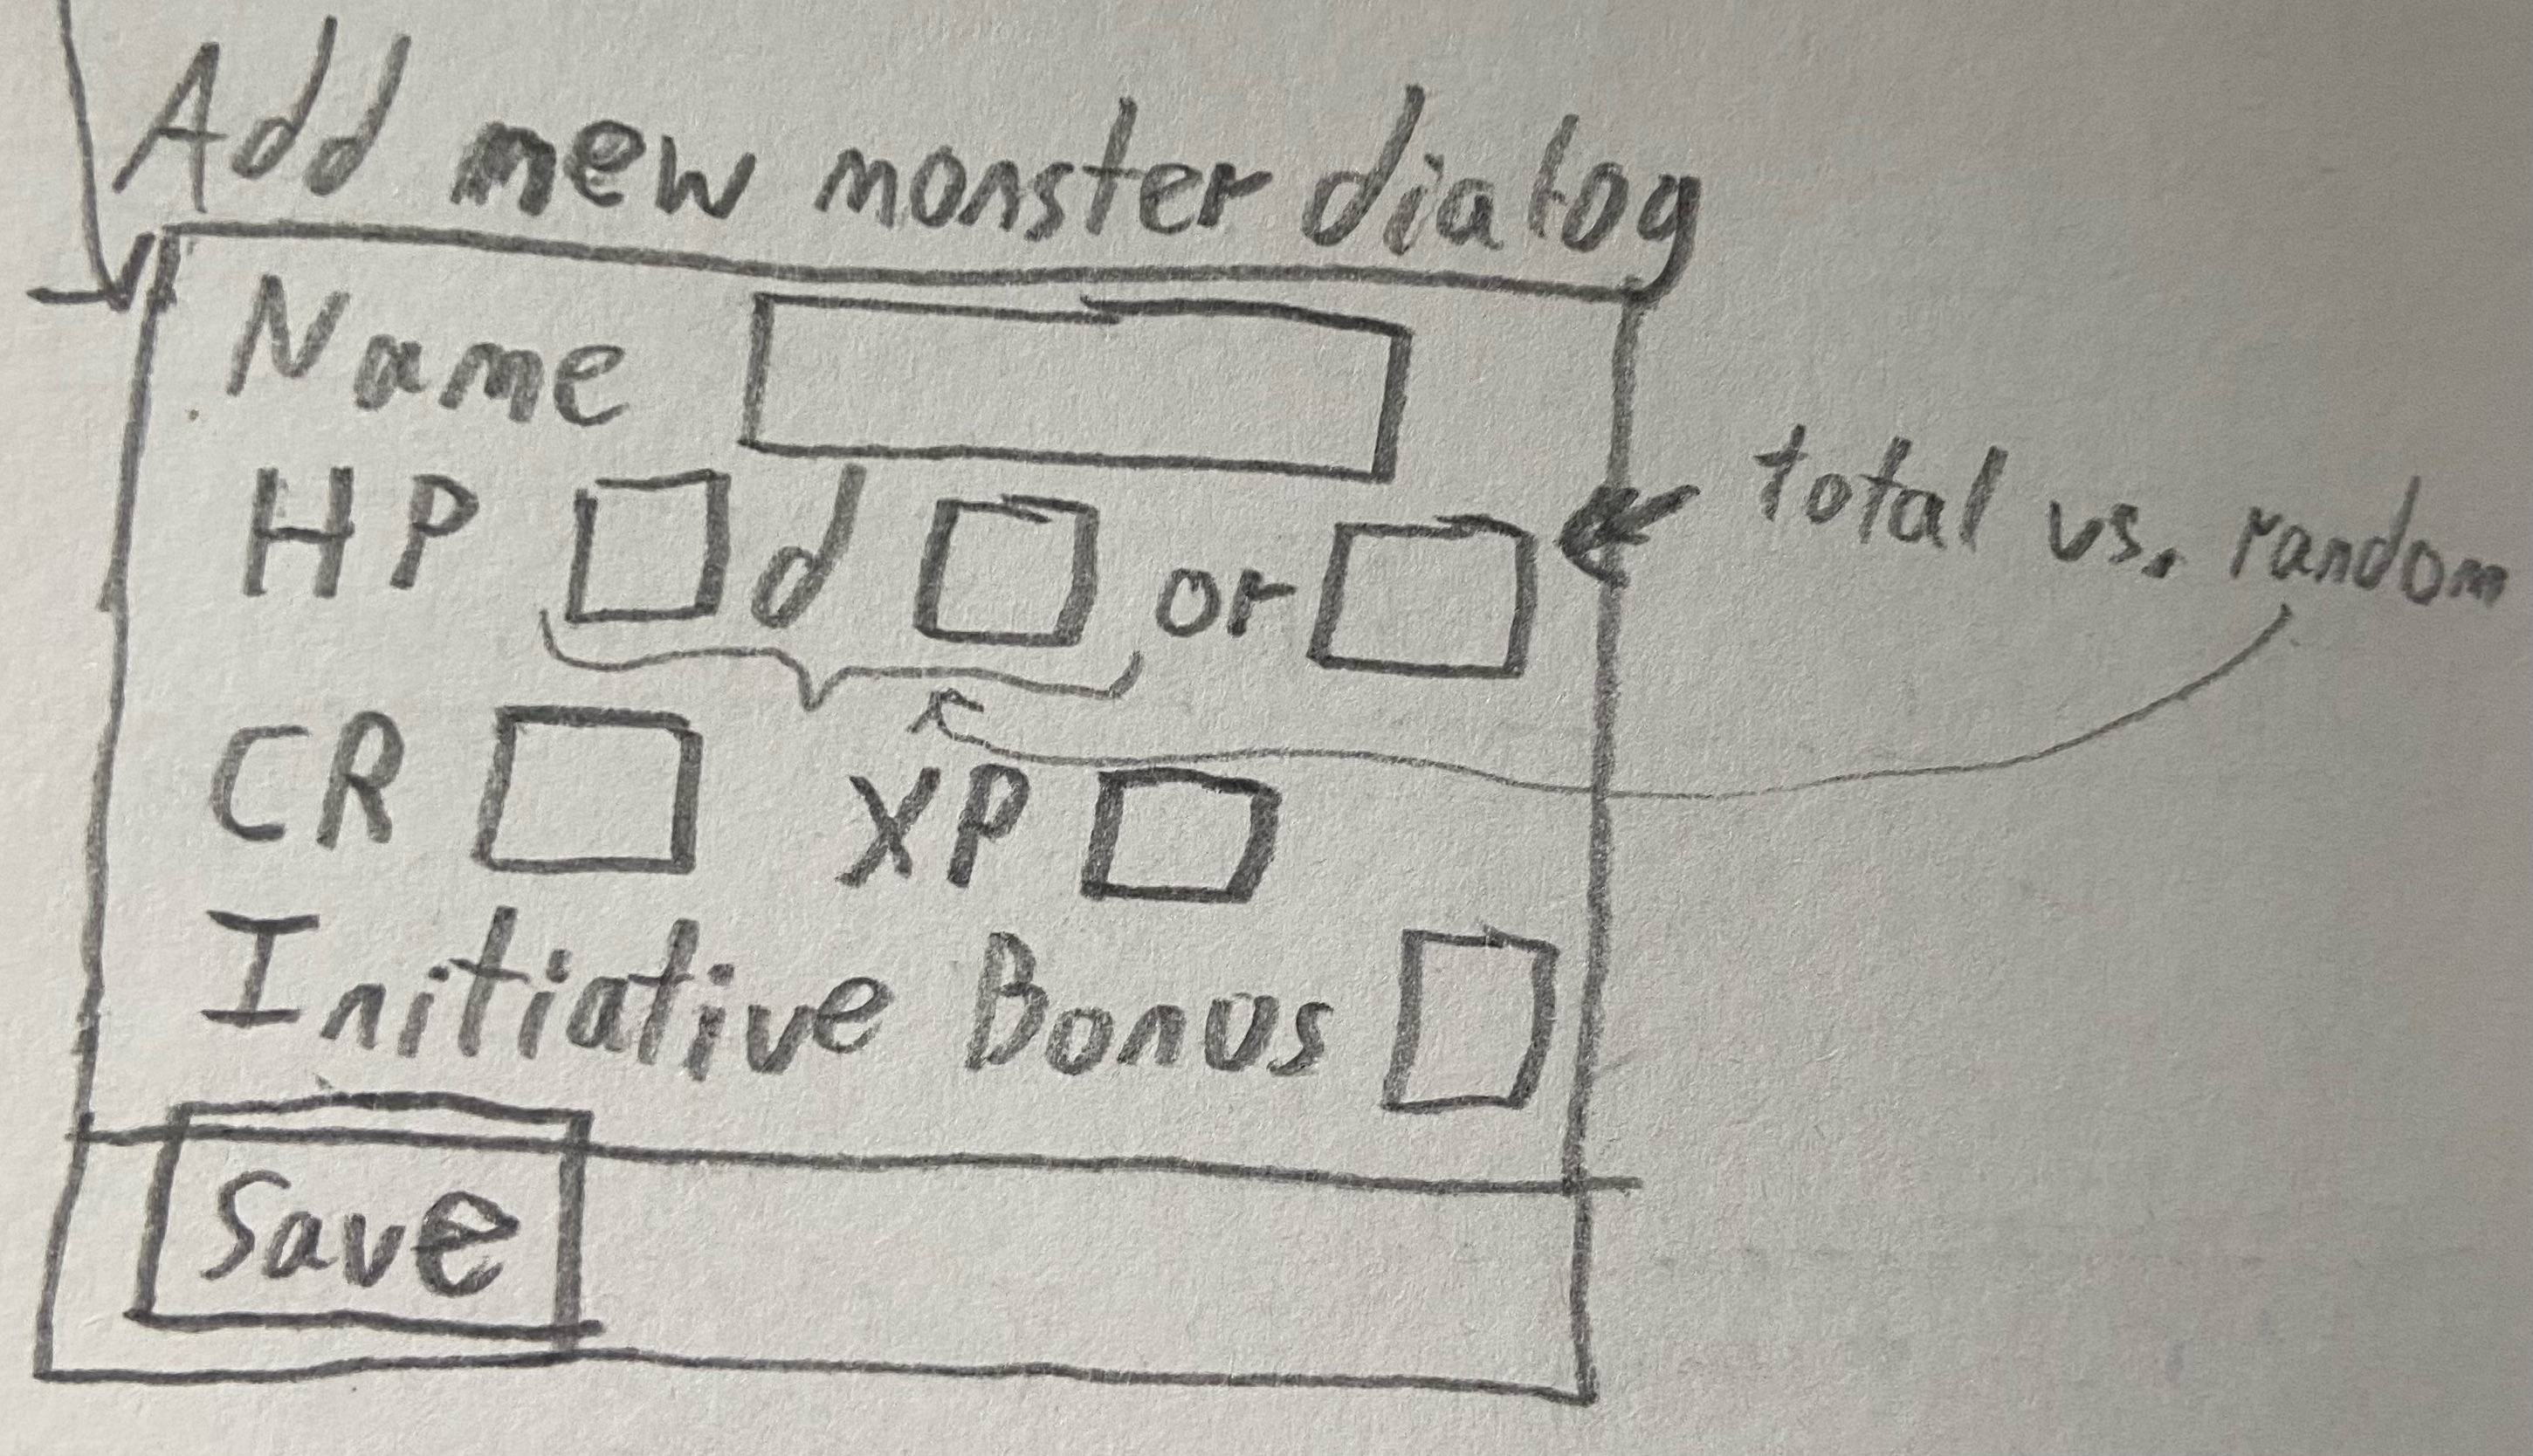 Add new monster dialog
Name
HP d or
total vs. random
CR XP
Initiative Bonus
Save